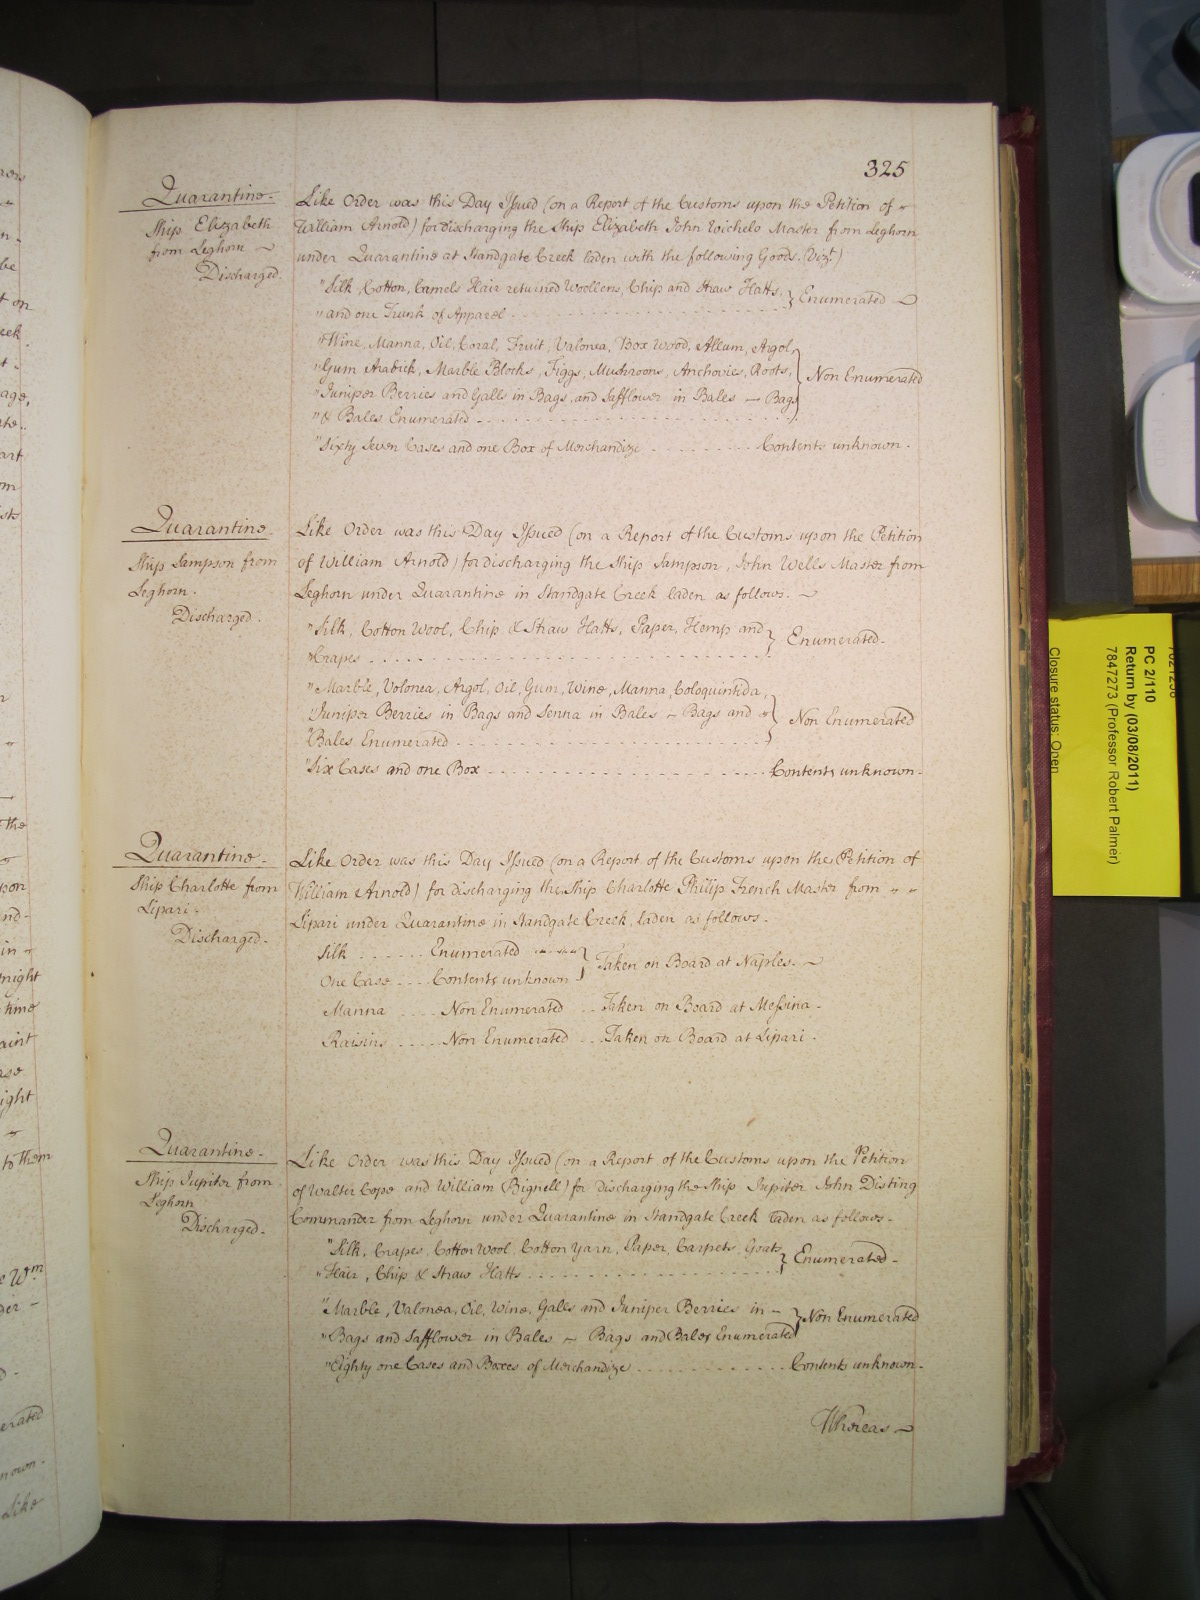 325
Quarantine.
Ship Elizabeth
from Leghorn
Discharged.
Like Order was this Day Issued (on a Report of the Customs upon the Petition of
William Arnold) for discharging the Ship Elizabeth John Wichelo Master from Leghorn
under Quarantine at Standgate Creek laden with the following Goods. (Vizt.)
"Silk, Cotton, Camels Hair returned Woollens, Chip and Straw Hatts, } Enumerated
"and one Trunk of Apparel
"Wine, Manna, Oil, Coral, Fruit, Valonea, Box Wood, Allum, Argol,
"Gum Arabick, Marble Blocks, Figgs, Mushrooms, Anchovies, Roots, } Non Enumerated
"Juniper Berries and Galls in Bags, and Safflower in Bales — Bags
"& Bales Enumerated
"Sixty Seven Cases and one Box of Merchandize . . . . . . . . Contents unknown.
Quarantine.
Ship Sampson from
Leghorn.
Discharged.
Like Order was this Day Issued (on a Report of the Customs upon the Petition
of William Arnold) for discharging the Ship Sampson, John Wells Master from
Leghorn under Quarantine in Standgate Creek laden as follows.
"Silk, Cotton Wool, Chip & Straw Hatts, Paper, Hemp and } Enumerated.
"Crapes
"Marble, Volonea, Argol, Oil, Gum, Wine, Manna, Coloquintida,
"Juniper Berries in Bags and Senna in Bales — Bags and } Non Enumerated
"Bales Enumerated
"Six Cases and one Box . . . . . . . . Contents unknown.
Quarantine.
Ship Charlotte from
Lipari.
Discharged.
Like Order was this Day Issued (on a Report of the Customs upon the Petition of
William Arnold) for discharging the Ship Charlotte Philip French Master from
Lipari under Quarantine in Standgate Creek, laden as follows.
Silk . . . . . . Enumerated } Taken on Board at Naples.
One Case . . . . Contents unknown
Manna . . . . Non Enumerated . . Taken on Board at Messina.
Raisins . . . . . Non Enumerated . . Taken on Board at Lipari.
Quarantine.
Ship Jupiter from
Leghorn
Discharged.
Like Order was this Day Issued (on a Report of the Customs upon the Petition
of Walter Cope and William Bignell) for discharging the Ship Jupiter John Disting
Commander from Leghorn under Quarantine in Standgate Creek laden as follows.
"Silk, Crapes, Cotton Wool, Cotton Yarn, Paper, Carpets, Goats } Enumerated.
"Hair, Chip & Straw Hatts
"Marble, Valonea, Oil, Wine, Galls and Juniper Berries in } Non Enumerated
"Bags and Safflower in Bales — Bags and Bales Enumerated
"Eighty one Cases and Boxes of Merchandize . . . . . . . . Contents unknown.
Whereas
PC 2/110
Return by (03/08/2011)
7847273 (Professor Robert Palmer)
Closure status: Open